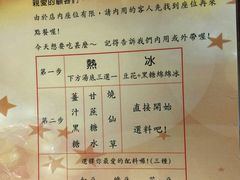 親愛的顧客們
由於店內座位有限，請內用的客人先找到座位再來
點餐喔！
今天想要吃甚麼～ 記得告訴我們內用或外帶喔！
熱 冰
第一步 下方湯底三選一 豆花+黑糖綿綿冰
第二步 薑汁黑糖 甘蔗糖水 燒仙草 直接開始
選料吧！
選擇你最愛的配料喔!(三種)